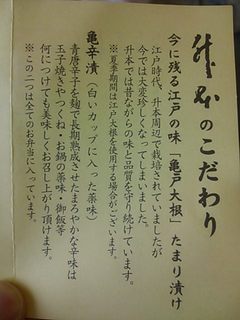 升本のこだわり
今に残る江戸の味「亀戸大根」たまり漬け
江戸時代、升本周辺で栽培されていましたが
今では大変珍しくなってしまいました。
升本では昔ながらの味と品質を守り続けています。
※夏季期間は江戸大根を使用する場合がございます。
亀辛漬（白いカップに入った薬味）
青唐辛子を麹で長期熟成させたまろやかな辛味は
玉子焼きやつくね・お鍋の薬味・御飯等
何につけても美味しくお召し上がり頂けます。
※この二つは全てのお弁当に入っています。